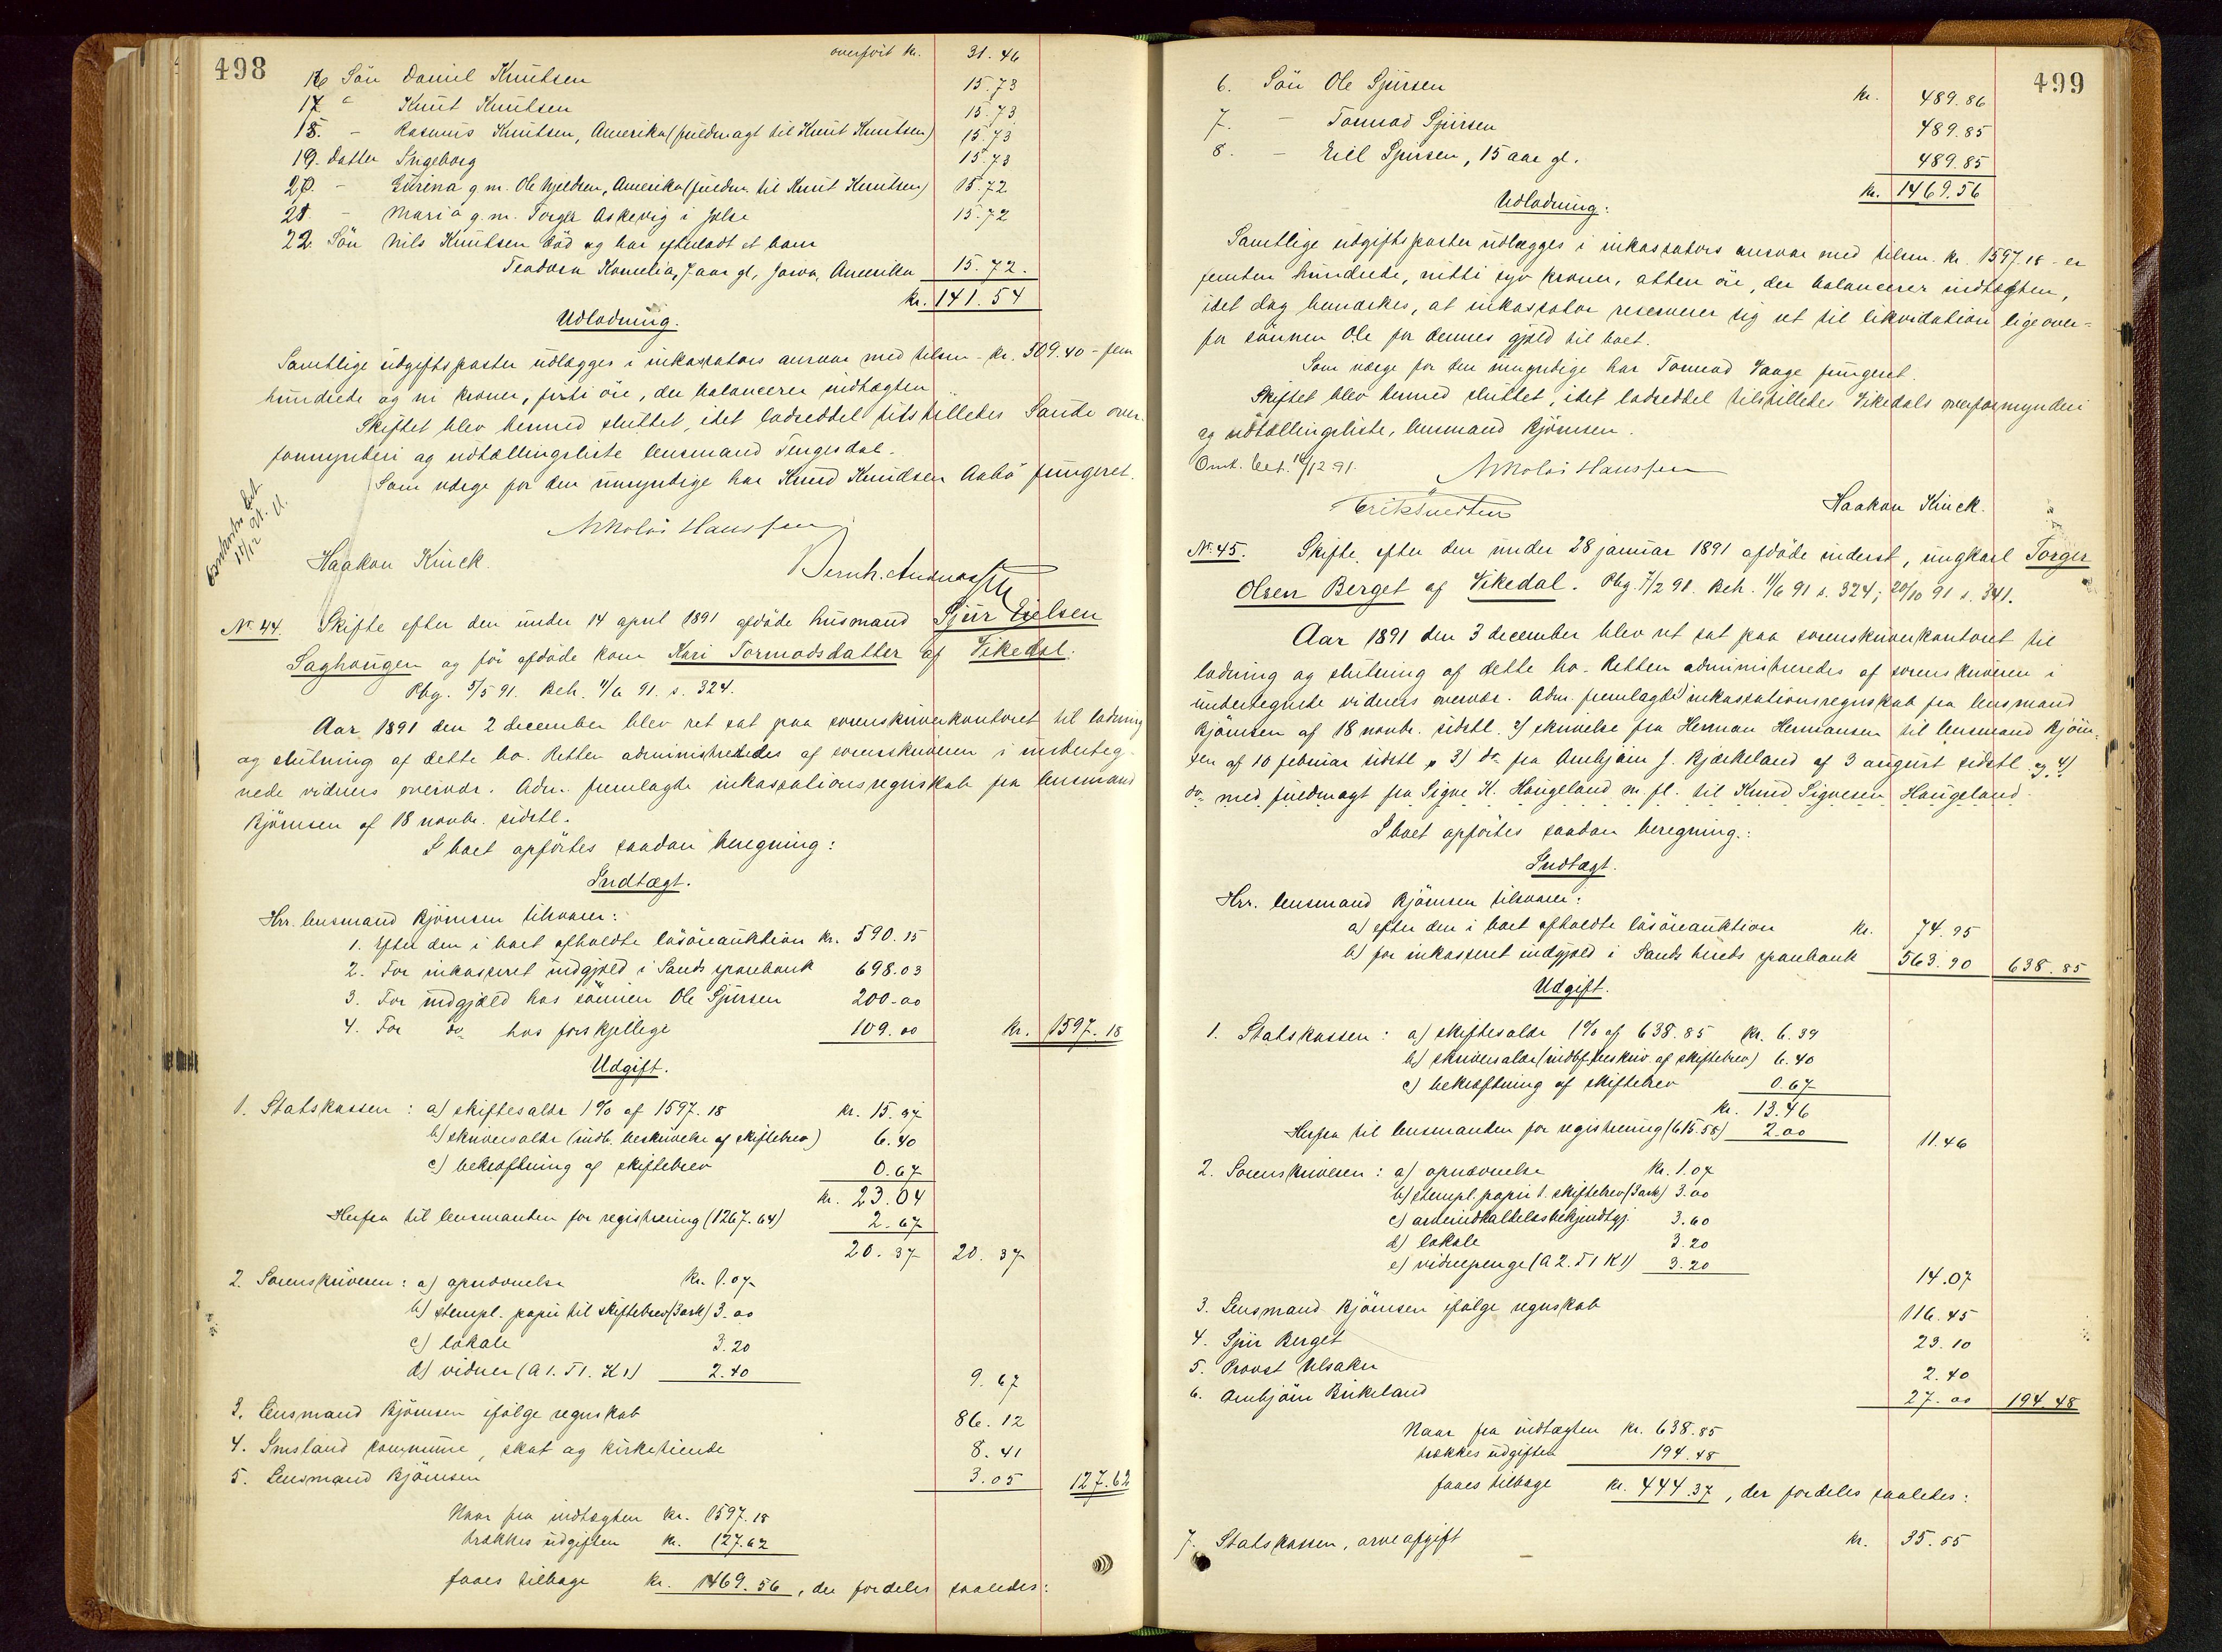 498
overført kr. 31.46
16 Sön Daniel Knutsen 15.73
17 " Knut Knutsen 15.73
18. - Rasmus Knutsen, Amerika (fuldmagt til Knut Knutsen) 15.73
19. Datter Ingeborg 15.73
20. - Gurina g.m. Ole Kjeldsen, Amerika (fuldm. til Knut Knutsen) 15.72
21. - Maria g.m. Torger Askevig i Jelse 15.72
22. Sön Nils Knutsen död og har efterladt et barn
Teodora Kornelia, 7 aar gl, Jowa, Amerika 15.72.
kr. 141.54
Udlodning.
Samtlige udgiftsposter udlægges i inkassators ansvar med tilsm - kr. 509.40 - fem
hundrede og ni kroner, førti öre, der balancerer indtægten
Skiftet blev hermed sluttet, idet lodseddel tilstilledes Saude over
formynderi og udtællingsliste lensmand Tengesdal.
Som værge for den umyndige har Knud Knudsen Aabö fungeret.
Nikolai Hanssen
Haakon Kinck.
Bernh. Andreassen
No 44. Skifte efter den under 14 april 1891 afdöde husmand Sjur Eielsen
Saghaugen og för afdöde kone Kari Tormodsdatter af Vikedal.
Pbg. 5/5 91. Beh. 11/6 91. s. 324.
Aar 1891 den 2 december blev ret sat paa sorenskriverkontoret til lodning
og slutning af dette bo. Retten administreredes af sorenskriveren i underteg-
nede vidners overvær. Adm. fremlagde inkassationsregnskab fra lensmand
Björnsen af 18 novbr. sidstl.
I boet opförtes saadan beregning:
Indtægt.
Hrr. lensmand Björnsen tilsvarer:
1. Efter den i boet afholdte lösöreauktion kr. 590.15
2. For inkasseret indgjæld i Sands sparebank 698.03
3. For indgjæld hos sönnen Ole Sjursen 200.00
4. For do hos forskjellige 109.00 kr. 1597.18
Udgift.
1. Statskassen: a) skiftesalær 1% af 1597.18 kr. 15.97
b) skriversalær (indb. beskrivelse af skiftebrev) 6.40
c) bekræftning af skiftebrev 0.67
kr. 23.04
Herfra til lensmanden for registrering (1267.64) 2.67
20.37 20.37
2. Sorenskriveren: a) opnævnelse kr. 1.07
b) stempl. papir til skiftebrev (3 ark) 3.00
c) lokale 3.20
d) vidner (A 1. T 1. K 1) 2.40 9.67
3. Lensmand Björnsen ifölge regnskab 86.12
4. Imsland kommune, skat og kirketiende 8.41
5. Lensmand Björnsen 3.05 127.62
Naar fra indtægten kr. 1597.18
trækkes udgiften kr. 127.62
faaes tilbage kr. 1469.56, der fordeles saaledes:
499
6. Sön Ole Sjursen kr. 489.86
7. - Tormod Sjursen 489.85
8. - Eiel Sjursen, 15 aar gl. 489.85
kr. 1469.56
Udlodning:
Samtlige udgiftsposter udlægges i inkassators ansvar med tilsm. kr. 1597.18 - er
femten hundrede, nitti syv kroner, atten öre, der balancerer indtægten,
idet dog bemærkes, at inkassator reserverer sig ret til likvidation ligeover-
for sönnen Ole for dennes gjæld til boet.
Som værge for den umyndige har Tormod Vaage fungeret.
Skiftet blev hermed sluttet, idet lodseddel tilstilledes Vikedals overformynderi
og udtællingsliste, lensmand Björnsen.
Nikolai Hanssen
Haakon Kinck.
No 45. Skifte efter den under 28 januar 1891 afdöde inderst, ungkarl Torger
Olsen Berget af Vikedal. Pbg. 7/2 91. Beh. 11/6 91 s. 324; 20/10 91 s. 341.
Aar 1891 den 3 december blev ret sat paa sorenskriverkontoret til
lodning og slutning af dette bo. Retten administreredes af sorenskriveren i
undertegnede vidners overvær. Adm. fremlagde inkassationsregnskab fra lensmand
Björnsen af 18 novbr. sidstl. 2) skrivelse fra Herman Hermansen til lensmand Björn-
sen af 10 februar sidstl 3) do fra Arnbjörn J. Bjerkeland af 3 august sidstl og 4)
do med fuldmagt fra Signe K. Haugeland m. fl. til Knud Sigvesen Haugeland.
I boet opförtes saadan beregning:
Indtægt.
Hrr. lensmand Björnsen tilsvarer:
a) efter den i boet afholdte lösöreauktion kr. 74.95
b) for inkasseret indgjæld i Sands herreds sparebank 563.90 638.85
Udgift.
1. Statskassen: a) skiftesalær 1% af 638.85 kr. 6.39
b) skriversalær (indbf. beskriv. af skiftebrev) 6.40
c) bekræftning af skiftebrev 0.67
kr. 13.46
Herfra til lensmanden for registrering (615.58) 2.00 11.46
2. Sorenskriveren: a) opnævnelse kr. 1.07
b) stempl. papir t. skiftebrev (3 ark) 3.00
c) arveindkaldelsesbekjendtgj. 3.60
d) lokale 3.20
e) vidnepenge (A 2. T 1 K 1) 3.20 14.07
3. Lensmand Björnsen ifölge regnskab 116.45
4. Sjur Berget 23.10
5. Provst Ulsaker 2.40
6. Arnbjörn Birkeland 27.00 194.48
Naar fra indtægten kr. 638.85
trækkes udgiften 194.48
faaes tilbage kr. 444.37, der fordeles saaledes:
7. Statskassen, arveafgift kr. 35.55